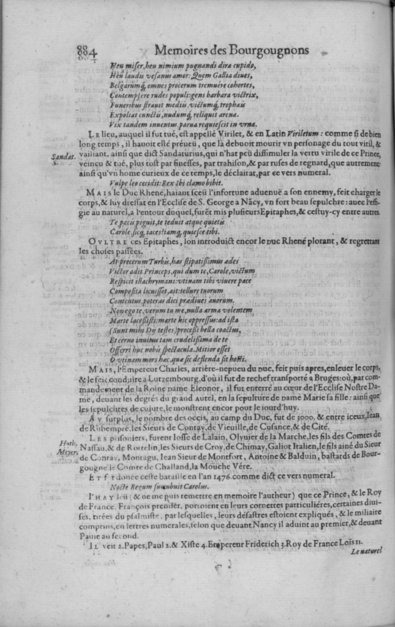 884 Memoires des Bourgougnons
Heu miser, heu nimium pugnandi dira cupido,
Heu laudis vesanus amor: Quem Gallia dives,
Belgarumq́ omnes procerum tremuere cohortes,
Contempsere rudes populi: gens barbara victrix,
Funeribus stravit mediis, victumq́ trophais
Expoliat cunctis, nudumq́ reliquit arena.
Vix tandem inventum parva requiescit in urna.
LA lieu, auquel il fut tué, est appellé Virilet, & en Latin Viriletum: comme si de bien
long temps, il havoit esté préveu, que là debvoit mourir vn personage du tout viril, &
vaillant, ainsi que dict Sandaturius, qui n'hat peu dissimuler la vertu virile de ce Prince,
Sandar.
veincu & tué, plus tost par finesses, par trahison, & par ruses de regnard, que autrement:
ainsi qu'vn home curieux de ce temps, le déclairat, par ce vers numeral.
Vulpe leo cecidit: Rex tibi clamo bibit.
MAIS le Duc Rhené, haiant sceu l'infortune advenue à son ennemy, feit charger le
corps, & luy dressat en l'Ecclise de S. George a Nãcy, vn fort beau sepulchre: avec l'effi-
gie au naturel, a l'entour duquel, furêt mis plusieurs Epitaphes, & cestuy-cy entre autres.
Te pacis piguit, te teduit atque quietis
Carole, sicq́, iaces: iamq́, quiesce tibi.
OVLTRE ces Epitaphes, lon introduict encor le duc Rhené plorant, & regrettant
les choses passées.
At procerum Turbis, has stipatissimus ades
Victor adit Princeps, qui dum te, Carole, victum
Respicit illachrymans: utinam tibi vivere pace
Composita licuisset, ait: tellure tuorum
Contentus poteras dici praedives avorum.
Non ego te, verum tu me, nulla arma volentem
Marte lacessisti: marte hic oppressus: ad ista
(Sunt mihi Dij testes) processi bella coactus,
Et cerno invitus tam crudelissima de te
Offerri huc nobis spectacula. Mitior esses
O utinam mors hac, qua sic desevda sit hosti.
MAIS, l'Empereur Charles, arriére-nepveu du nue, feit puis aprés, enlever le corps,
& le feit conduire à Lutzembourg, d'où il fut de rechef transporté a Bruges: où, par com-
mandement de la Roine païne Eleonor, il fut enterré au cœur de l'Ecclise Nostre Da-
me, devant les degrés du grand autel, en la sepulture de dame Marie sa fille: ainsi que
les sepulchres de cuivre, le monstrent encor pour le iourd'huy.
AV surplus, le nombre des occis, au camp du Duc, fut de 3000. & entre iceux, Iean
de Rubempré, les Sieurs de Contay, de Vieuille, de Cusance, & de Cité.
LES prisoniers, furent Iosse de Lalain, Olyvier de la Marche, les fils des Comtes de
Nassau, & de Rottelin, les Sieurs de Croy, de Chimay, Galiot Italien, le fils ainé du Sieur
de Contay, Montagu, Iean Sieur de Montfort, Antoine & Balduin, bastards de Bour-
Meyer.
gougne, le Comte de Challand, la Mouche Vére.
ET fut donce ceste bataille en l'an 1476. comme dict ce vers numeral.
Nocte Regum succubuit Carolus.
I'HAY leu (& ne me puis remettre en memoire l'autheur) que ce Prince, & le Roy
de France, François premier, portoient en leurs cornettes particuliéres, certaines divi-
ses, tirées du psalmiste, par lesquelles, leurs désastres estoient expliqués, & le miliaire
comprins, en lettres numerales, selon que devant Nancy il advint au premier, & devant
Pavie au second.
IL veit 2. Papes, Paul 2. & Xiste 4. Empereur Friderich 3. Roy de France Loïs 11.
Le naturel